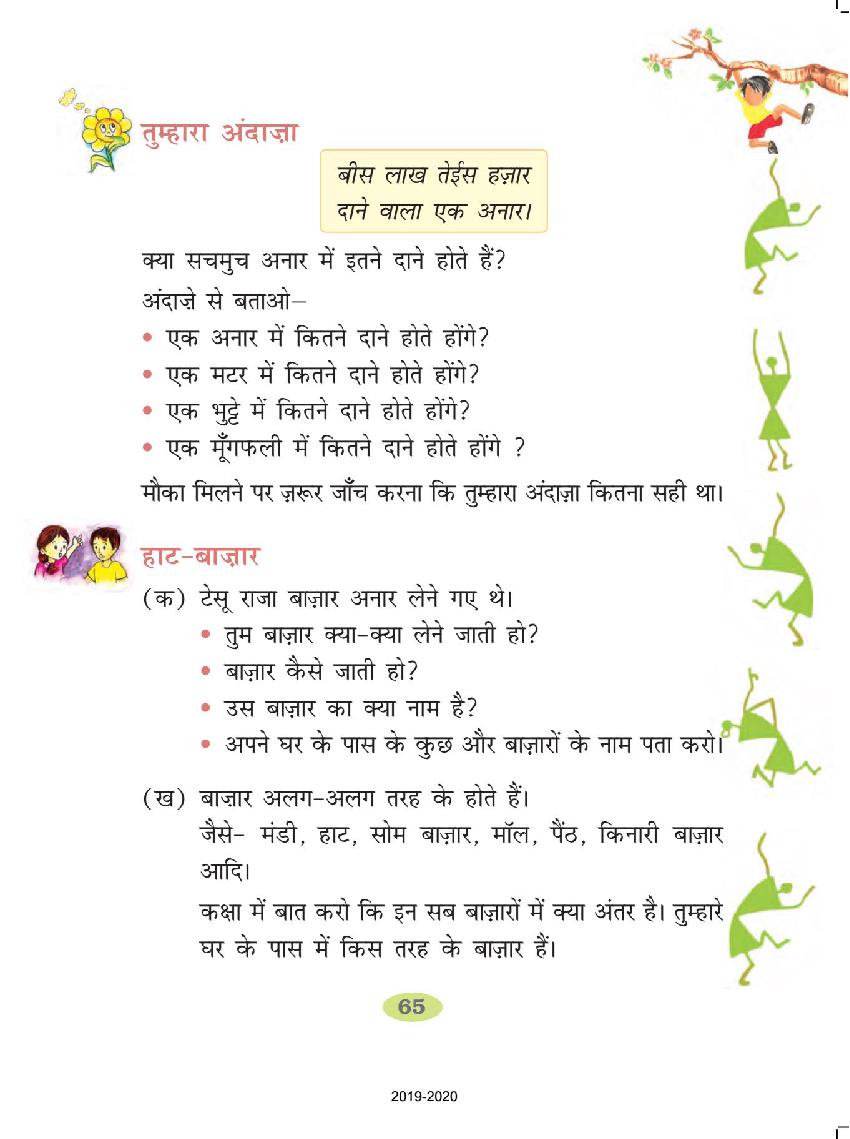 तुम्हारा अंदाज़ा
बीस लाख तेईस हज़ार
दाने वाला एक अनार।
क्या सचमुच अनार में इतने दाने होते हैं?
अंदाज़े से बताओ–
• एक अनार में कितने दाने होते होंगे?
• एक मटर में कितने दाने होते होंगे?
• एक भुट्टे में कितने दाने होते होंगे?
• एक मूँगफली में कितने दाने होते होंगे ?
मौका मिलने पर ज़रूर जाँच करना कि तुम्हारा अंदाज़ा कितना सही था।
हाट-बाज़ार
(क) टेसू राजा बाज़ार अनार लेने गए थे।
• तुम बाज़ार क्या-क्या लेने जाती हो?
• बाज़ार कैसे जाती हो?
• उस बाज़ार का क्या नाम है?
• अपने घर के पास के कुछ और बाज़ारों के नाम पता करो।
(ख) बाज़ार अलग-अलग तरह के होते हैं।
जैसे- मंडी, हाट, सोम बाज़ार, मॉल, पैंठ, किनारी बाज़ार
आदि।
कक्षा में बात करो कि इन सब बाज़ारों में क्या अंतर है। तुम्हारे
घर के पास में किस तरह के बाज़ार हैं।
65
2019-2020